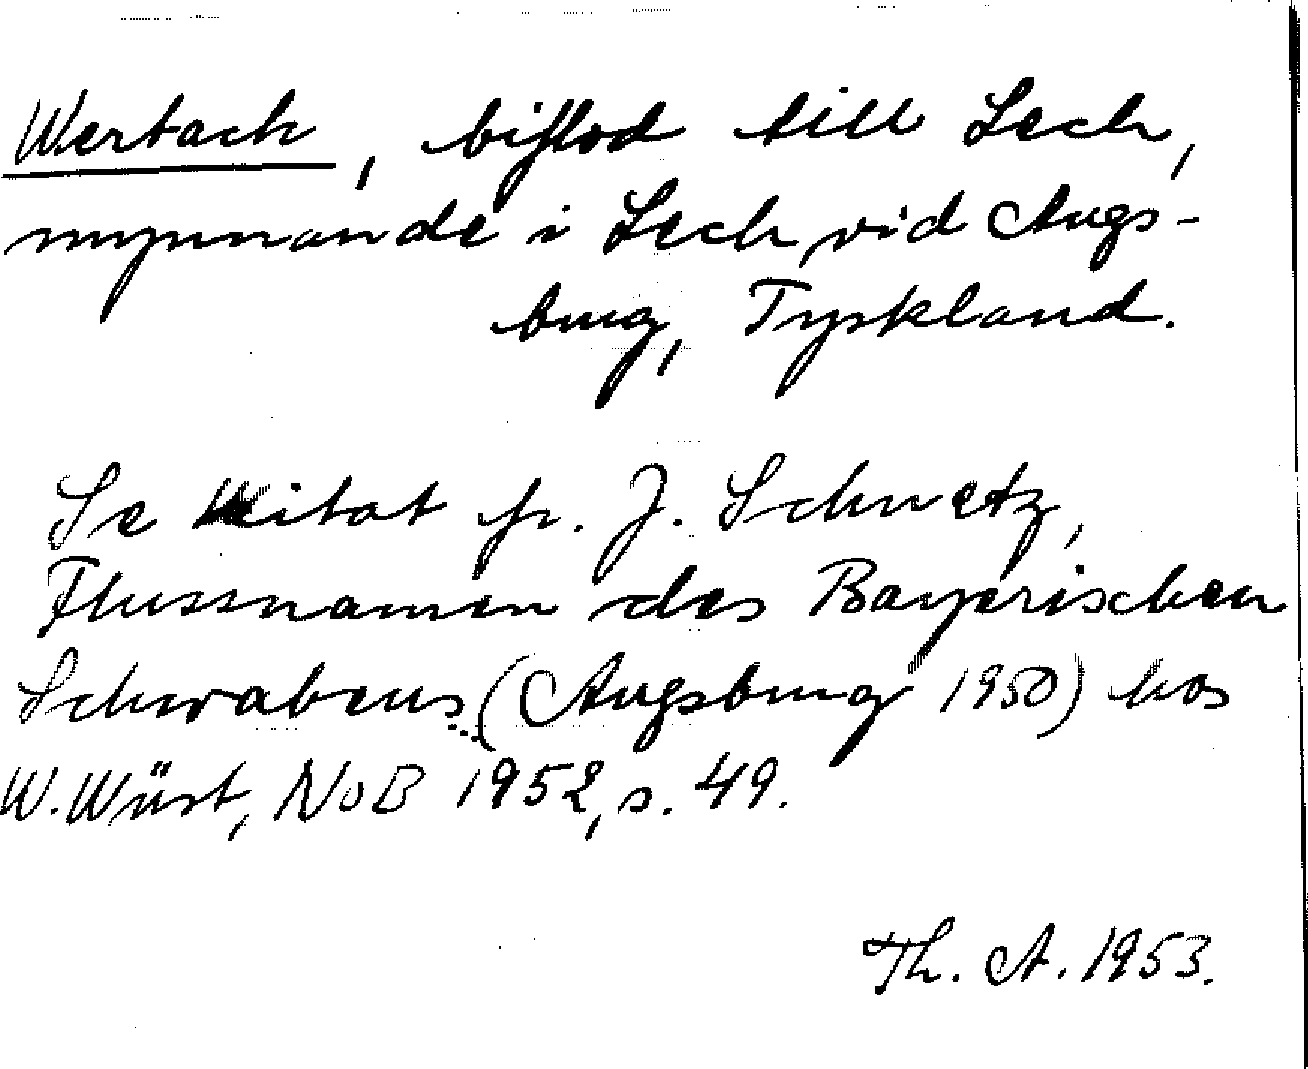 Wertach, biflod till Lech,
mynnande i Lech vid Augs-
burg, Tyskland.
Se citat fr. J. Schnetz,
Flussnamen des Bayerischen
Schwabens (Augsburg 1950) hos
W. Wüst, NoB 1952, s. 49.
Th. A. 1953.